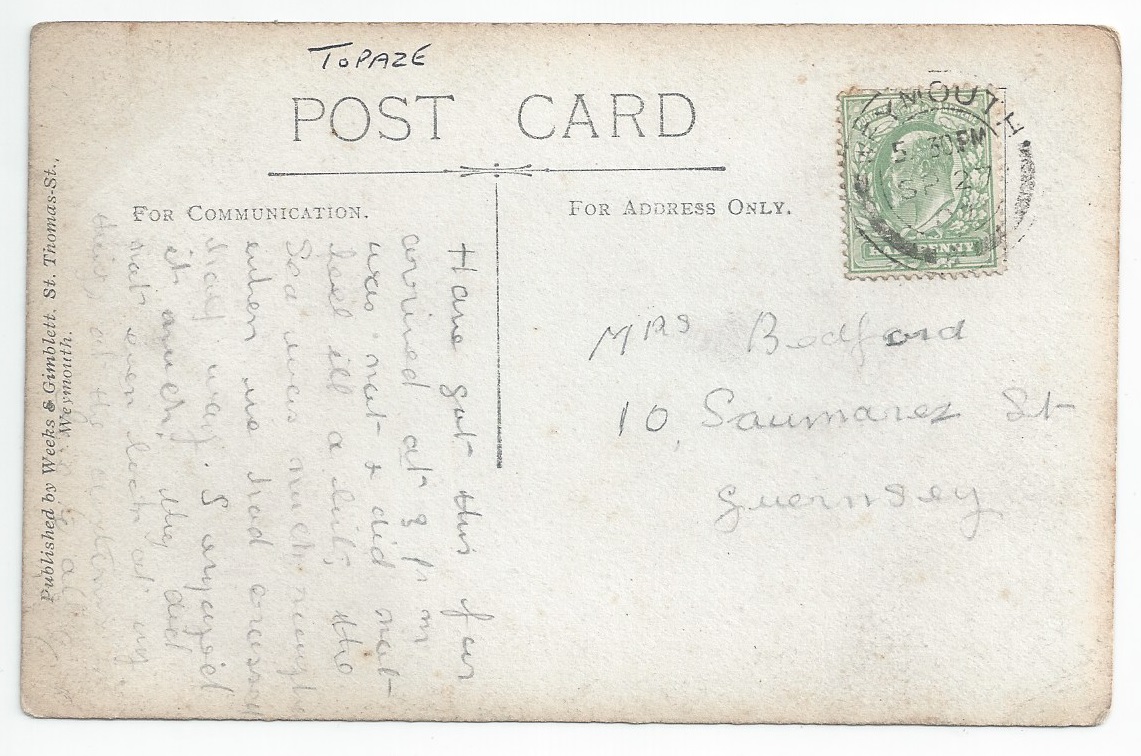 TOPAZE
POST CARD
FOR COMMUNICATION.
FOR ADDRESS ONLY.
WEYMOUTH
5.30PM
SP 27
HALFPENNY
Mrs Bedford
10, Saumarez St
Guernsey
Have got this far
arrived at 3 p m
was not & did not
feel ill a bit, the
Sea was much rough
when we had cross
way. I enjoyed
it much, they did
not even look at my
Published by Weeks & Gimblett. St. Thomas-St.,
Weymouth.